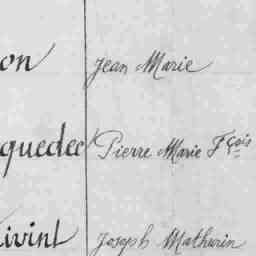 on Jean Marie
quedec Pierre Marie Fçois
ivint Joseph Mathurin